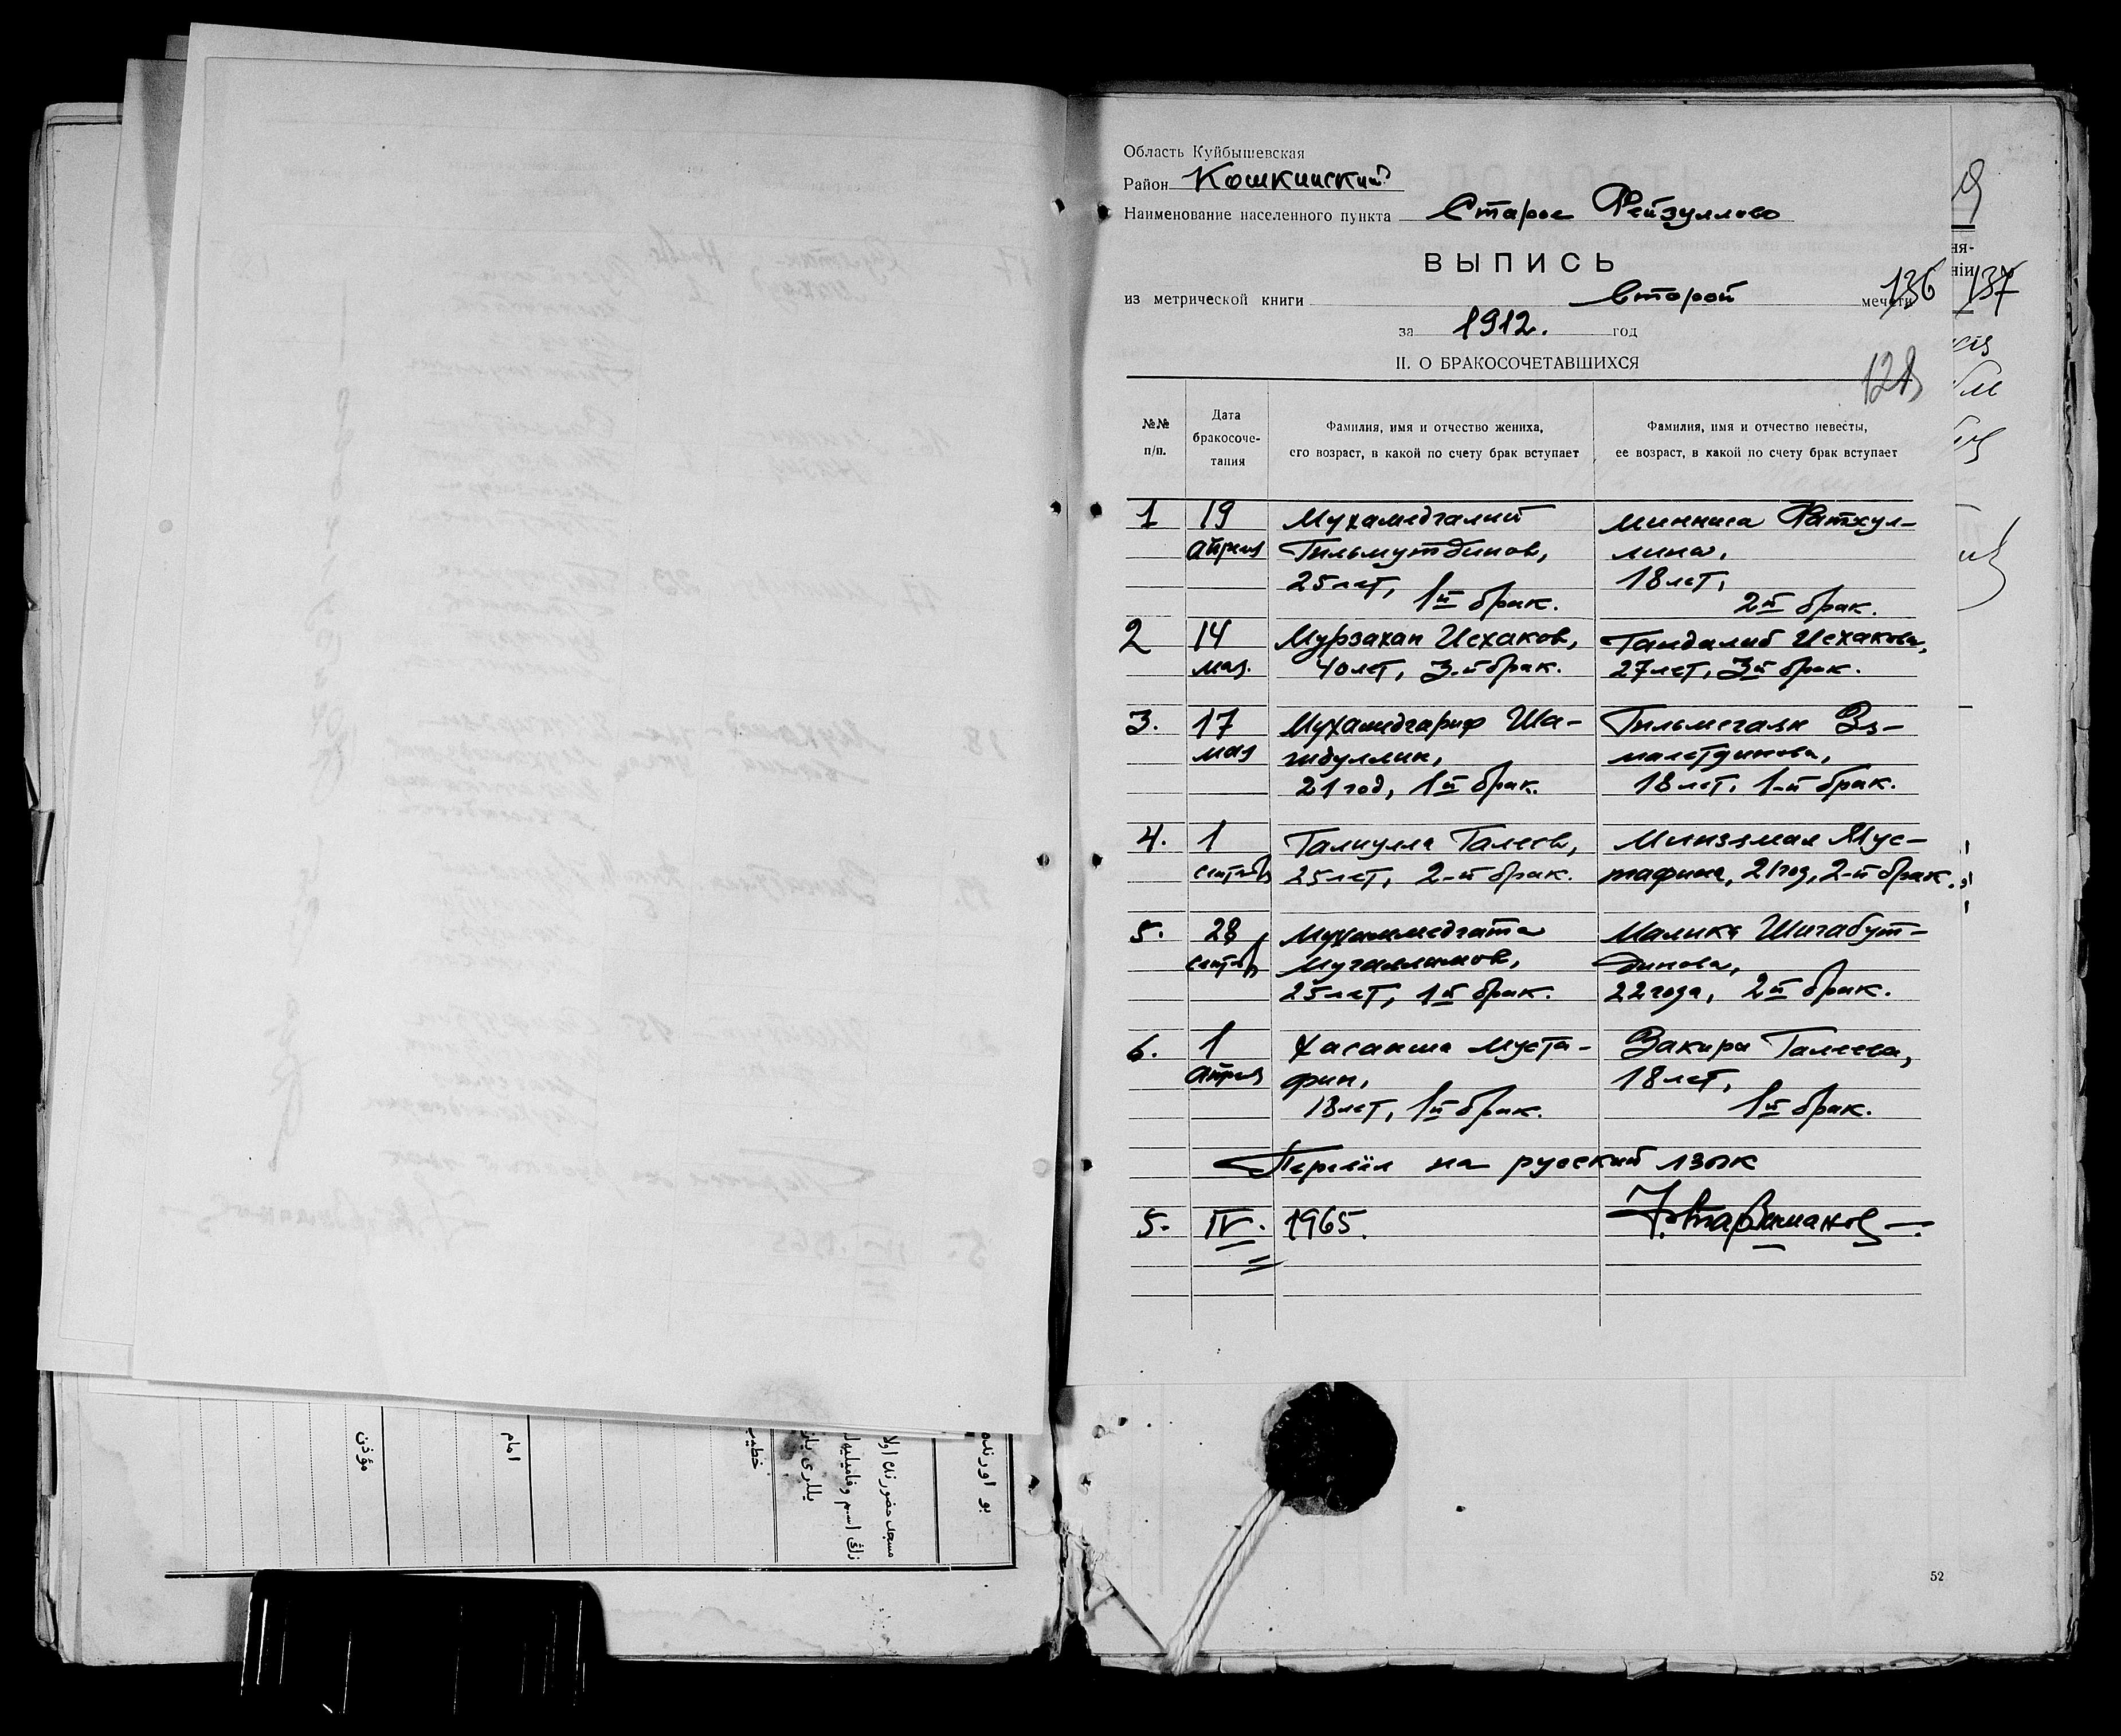 Область Куйбышевская
Район Кошкинский
Наименование населенного пункта Старое Фейзуллово
ВЫПИСЬ
из метрической книги второй мечети 136 137
за 1912. год
II. О БРАКОСОЧЕТАВШИХСЯ
№№ п/п.
Дата бракосоче-тания
Фамилия, имя и отчество жениха,
его возраст, в какой по счету брак вступает
Фамилия, имя и отчество невесты,
ее возраст, в какой по счету брак вступает
1 19 Мухамедгалий Минниса Фатхул-
апреля Гильмутдинов, лина,
25 лет, 18 лет,
1й брак. 2й брак.
2 14 Мурзахан Исхаков, Исхакова,
мая. 40 лет, 3-й брак. 27 лет, 3й брак.
3. 17 Мухамедгариф Ша-
мая 
21 год, 1й брак. 18 лет, 1-й брак.
4. 1 Галиулла Галеев, Мус-
сентября 25 лет, 2-й брак. тафина, 21 год, 2-й брак.
5. 28 Мухаммедгата Малика Шигабут-
сентяб Мугаллимов, динова,
25 лет, 1й брак. 22 года, 2й брак.
6. 1 Хасанша Муста- Закира Галеева,
апреля фин, 18 лет,
18 лет, 1й брак. 1й брак.
Перевёл на русский язык
5. IV. 1965.
52
بو اورنده
خطيب
امام
مؤذن